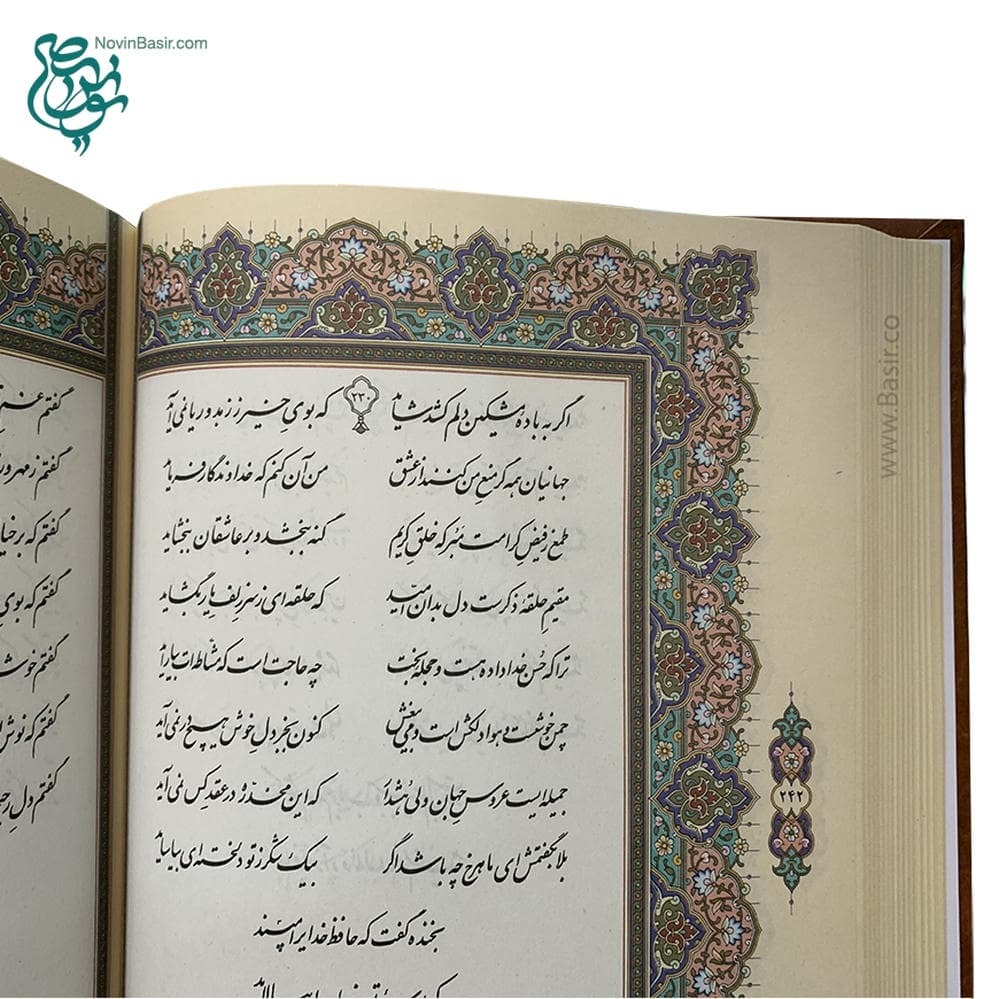 NovinBasir.com
www.Basir.co
۲۳۰
اگر به باده مشکین دلم کشد شاید که بوی خیر ز زهد و ریا نمی آید
جهانیان همه گر منع من کنند از عشق من آن کنم که خداوندگار فرماید
طمع ز فیض کرامت مبر که خلق کریم گنه ببخشد و بر عاشقان ببخشاید
مقیم حلقهٔ ذکرست دل بدان امید که حلقه ای ز سر زلف یار بگشاید
ترا که حسن خداداده هست و حجله بخت چه حاجت است که مشاطه ات بیاراید
چمن خوشست و هوا دلکش است و می بیغش کنون بجز دل خوش هیچ در نمی آید
جمیله ایست عروس جهان ولی هشدار که این مخدره در عقد کس نمی آید
بلابه گفتمش ای ماهرخ چه باشد اگر بیک شکر ز تو دلخسته ای بیاساید
بخنده گفت که حافظ خدایرا مپسند
۲۴۲
گفتم
گفتم ز
گفتم که بر
گفتم که بوی
گفتم
گفتم که نوش
گفتم دل